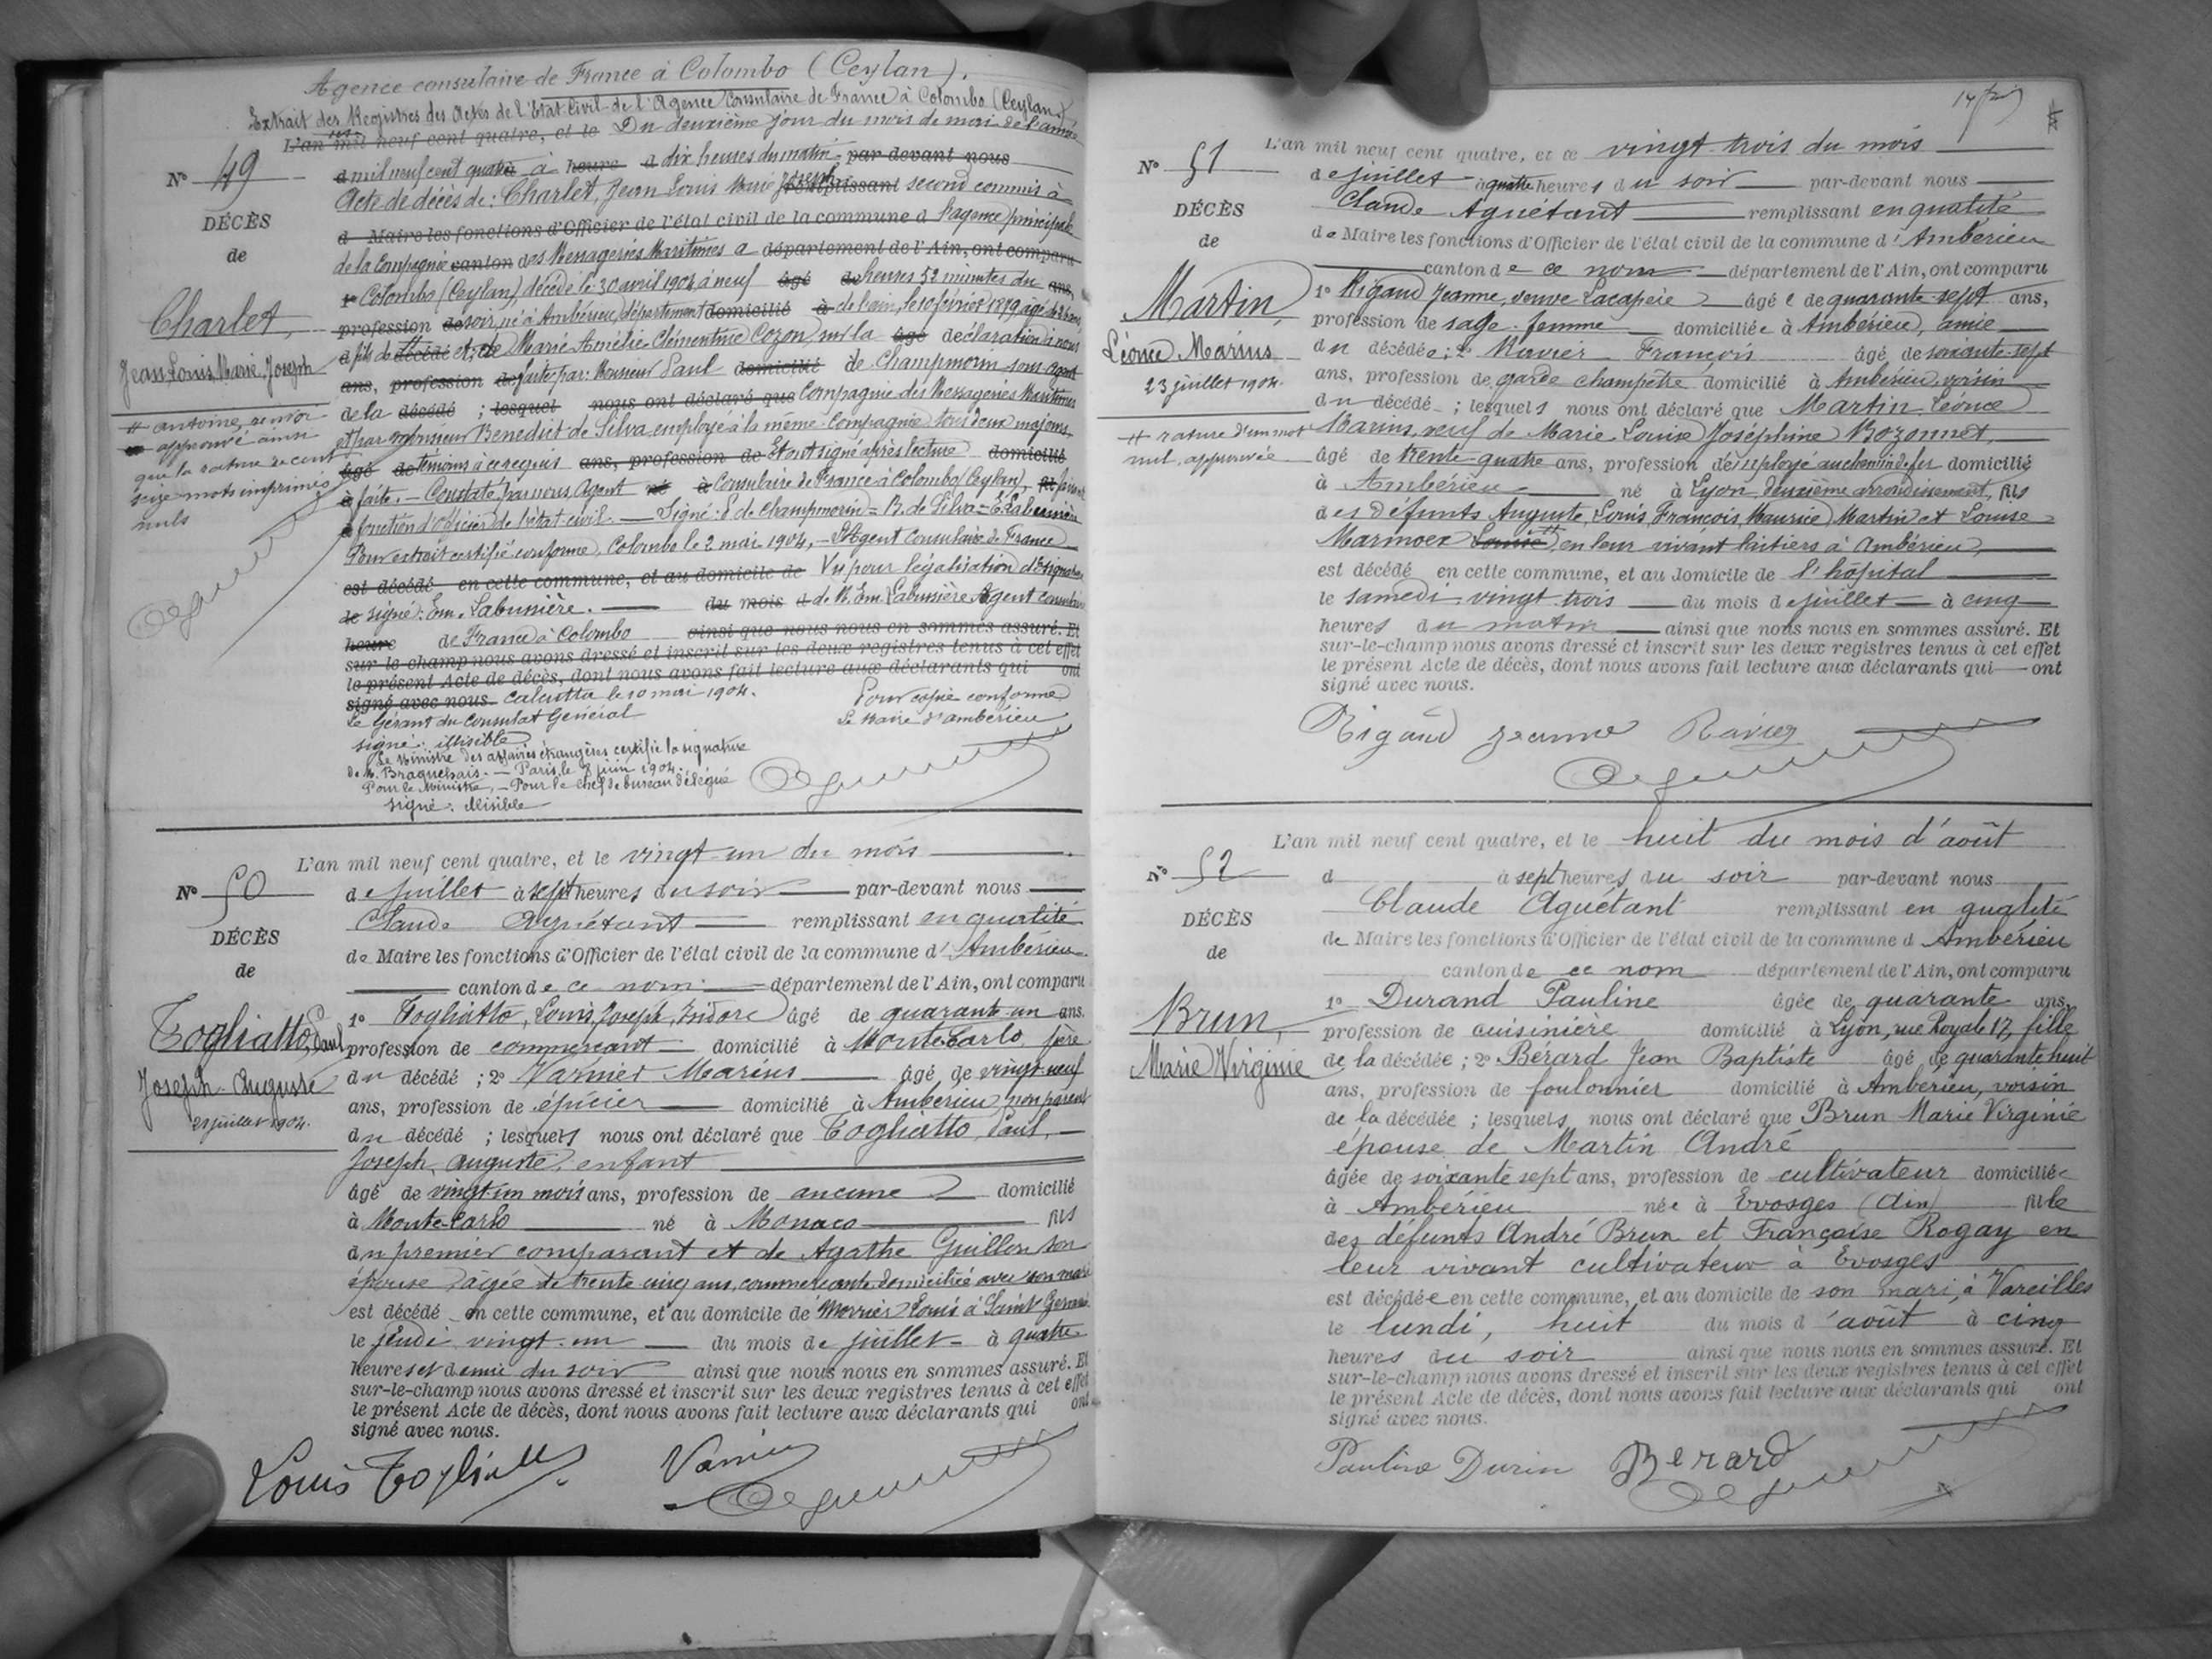 Agence consulaire de France à Colombo (Ceylan).
Extrait des Registres des Actes de l'Etat Civil de l'Agence Consulaire de France à Colombo (Ceylan)
L'an mil neuf cent quatre, et le Du deuxième jour du mois de mai de l'année
mil neuf cent quatre à heure à dix heures du matin par-devant nous
Nº 49
DÉCÈS
de
Charlet,
Jean Louis Marie Joseph
# antoine, renvoi
approuvé ainsi
que la rature de cent
seize mots imprimés
nuls
Acte de décès de : Charlet, Jean Louis Marie Joseph remplissant second commis à
d Maire les fonctions d'Officier de l'état civil de la commune d l'agence principale
de la Compagnie canton des Messageries Maritimes à département de l'Ain, ont comparu
1º Colombo (Ceylan) décédé le 30 avril 1904 à neuf âgé de heures 52 minutes du ans,
profession de soir, né à Ambérieu, département domicilié à de l'ain, le 10 février 1879, âgé de 25 ans,
fils de décédé et de Marie Amélie Clémentine Cozon, sur la âgé déclaration à nous
ans, profession de faite par : Monsieur Paul domicilié de Champmorin sous agent
de la décédé ; lesquel nous ont déclaré que Compagnie des Messageries Maritimes
et par Monsieur Benedict de Silva employé à la même Compagnie tous deux majeurs,
âgé de témoins à ce requis ans, profession de Et ont signé après lecture domicilié
à faite. — Constaté par nous, Agent né à Consulaire de France à Colombo (Ceylan), fil faisant
fonction d'officier de l'état civil. — Signé : P. de Champmorin = B. de Silva = E. Labussière
Pour extrait certifié conforme, Colombo le 2 mai 1904, — L'Agent Consulaire de France
est décédé en cette commune, et au domicile de Vu pour légalisation de signature
le signé : Em. Labussière. — du mois d de M. Em. Labussière Agent consulaire
heure de France à Colombo ainsi que nous nous en sommes assuré. Et
sur-le-champ nous avons dressé et inscrit sur les deux registres tenus à cet effet
le présent Acte de décès, dont nous avons fait lecture aux déclarants qui ont
signé avec nous. Calcutta le 10 mai 1904.
Le Gérant du Consulat Général
signé : illisible
Pour copie conforme
Le Maire d'Ambérieu
Le Ministre des affaires étrangères certifie la signature
de M. Braquehais. — Paris, le 8 juin 1904.
Pour le Ministre, — Pour le chef de bureau délégué
signé : illisible
L'an mil neuf cent quatre, et le vingt-un du mois
Nº 50
DÉCÈS
de
Togliatto, Paul
Joseph Auguste
21 juillet 1904.
de juillet à sept heures du soir par-devant nous
Claude Aguétant remplissant en qualité
de Maire les fonctions d'Officier de l'état civil de la commune d'Ambérieu
canton de ce nom département de l'Ain, ont comparu
1º Togliatto, Louis, Joseph, Isidore âgé de quarante-un ans,
profession de commerçant domicilié à Monte-Carlo, père
du décédé ; 2º Varnier Marius âgé de vingt-neuf
ans, profession de épicier domicilié à Ambérieu, non parent
du décédé ; lesquels nous ont déclaré que Togliatto, Paul,
Joseph Auguste, enfant
âgé de vingt un mois ans, profession de aucune domicilié
à Monte-Carlo né à Monaco fils
du premier comparant et de Agathe Guillon son
épouse âgée de trente cinq ans, commerçante domiciliée avec son mari
est décédé en cette commune, et au domicile de Morrier Louis à Saint Germain
le jeudi vingt-un du mois de juillet à quatre
heures et demie du soir ainsi que nous nous en sommes assuré. Et
sur-le-champ nous avons dressé et inscrit sur les deux registres tenus à cet effet
le présent Acte de décès, dont nous avons fait lecture aux déclarants qui ont
signé avec nous.
Louis Togliatto
L'an mil neuf cent quatre, et le vingt-trois du mois
Nº 51
DÉCÈS
de
Martin,
Léonce Marius
23 juillet 1904.
# rature d'un mot
nul, approuvée
de juillet à quatre heures du soir par-devant nous
Claude Aguétant remplissant en qualité
de Maire les fonctions d'Officier de l'état civil de la commune d'Ambérieu
canton de ce nom département de l'Ain, ont comparu
1º Rigaud Jeanne, veuve Lacapeie âgée de quarante sept ans,
profession de sage-femme domiciliée à Ambérieu, amie
du décédée ; 2º Ravier François âgé de soixante-sept
ans, profession de garde champêtre domicilié à Ambérieu, voisin
du décédé ; lesquels nous ont déclaré que Martin Léonce
Marius, veuf de Marie Louise Joséphine Bozonnet,
âgé de trente-quatre ans, profession d'employé au chemin de fer domicilié
à Ambérieu né à Lyon, deuxième arrondissement, fils
des défunts Auguste, Louis, François, Maurice Martin et Louise
Marmoex Louise #, en leur vivant laitiers à Ambérieu,
est décédé en cette commune, et au domicile de l'hôpital
le samedi vingt-trois du mois de juillet à cinq
heures du matin ainsi que nous nous en sommes assuré. Et
sur-le-champ nous avons dressé et inscrit sur les deux registres tenus à cet effet
le présent Acte de décès, dont nous avons fait lecture aux déclarants qui ont
signé avec nous.
Rigaud Jeanne Ravier
L'an mil neuf cent quatre, et le huit du mois d'août
Nº 52
DÉCÈS
de
Brun,
Marie Virginie
d à sept heures du soir par-devant nous
Claude Aguétant remplissant en qualité
de Maire les fonctions d'Officier de l'état civil de la commune d Ambérieu
canton de ce nom département de l'Ain, ont comparu
1º Durand Pauline âgée de quarante ans,
profession de cuisinière domicilié à Lyon, rue Royale 17, fille
de la décédée ; 2º Bérard Jean Baptiste âgé de quarante huit
ans, profession de foulonnier domicilié à Ambérieu, voisin
de la décédée ; lesquels nous ont déclaré que Brun Marie Virginie
épouse de Martin André
âgée de soixante sept ans, profession de cultivateur domiciliée
à Ambérieu née à Evosges (Ain) fille
des défunts André Brun et Françoise Rogay en
leur vivant cultivateur à Evosges
est décédée en cette commune, et au domicile de son mari, à Vareilles
le lundi, huit du mois d'août à cinq
heures du soir ainsi que nous nous en sommes assuré. Et
sur-le-champ nous avons dressé et inscrit sur les deux registres tenus à cet effet
le présent Acte de décès, dont nous avons fait lecture aux déclarants qui ont
signé avec nous.
Pauline Durin Berard